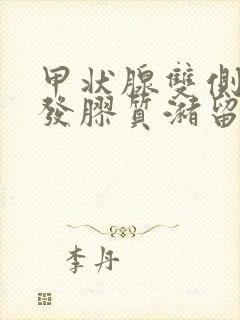 甲狀腺雙側
發膠質瀦留
李丹